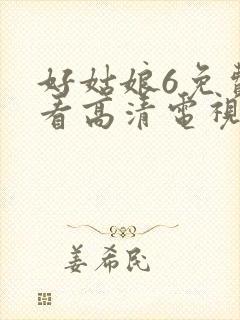 好姑娘6免費
看高清電視
姜希民